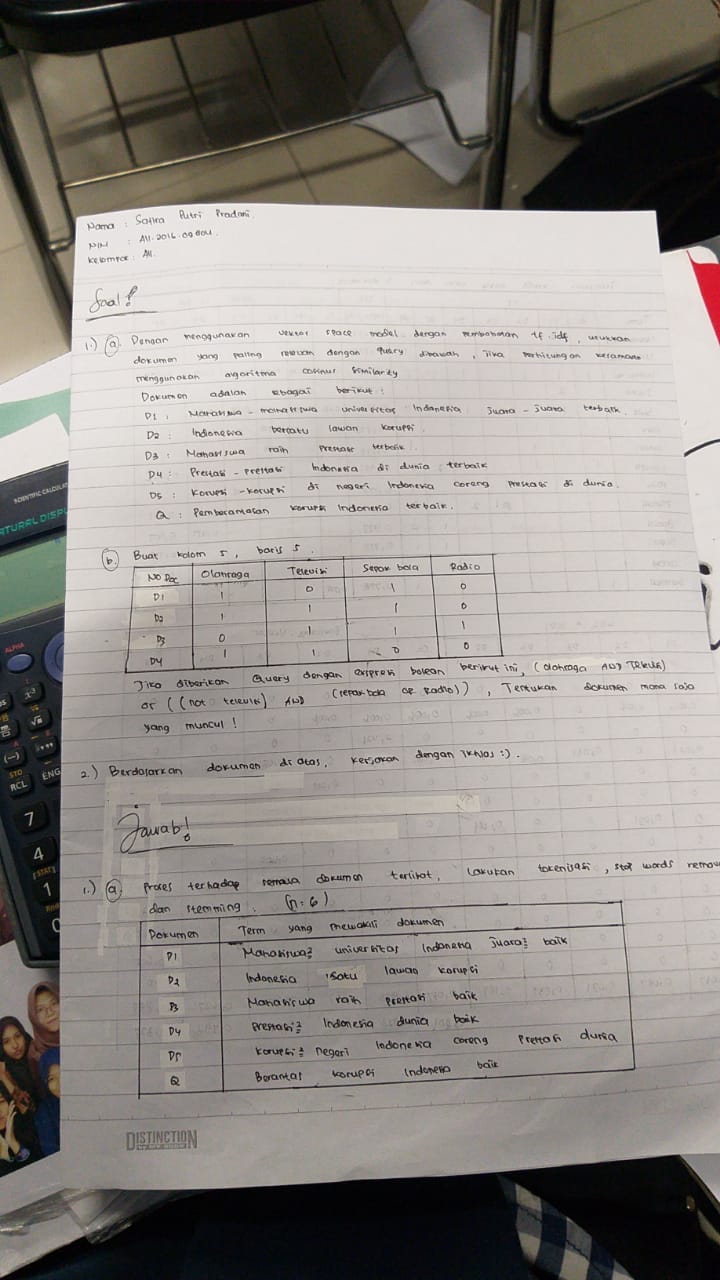 Nama : Safira Putri Pradani.
NIM : A11.2016.09804.
Kelompok : A11.
Soal!
1.) a. Dengan menggunakan vektor space model dengan pembobotan tf.idf, urutkan
dokumen yang paling relevan dengan query dibawah, jika perhitungan keramaan
menggunakan algoritma cosinus similarity
Dokumen adalah sebagai berikut :
D1 : Mahasiswa - mahasiswa universitas Indonesia juara - juara terbaik.
D2 : Indonesia bersatu lawan korupsi
D3 : Mahasiswa raih prestasi terbaik
D4 : Prestasi - prestasi Indonesia di dunia terbaik
D5 : Korupsi - korupsi di negeri Indonesia coreng prestasi di dunia.
Q : Pemberantasan korupsi Indonesia terbaik.
b. Buat kolom 5, baris 5.
No Doc Olahraga Televisi Sepak bola Radio
D1 1 0 1 0
D2 1 1 1 0
D3 0 1 1 1
D4 1 1 0 0
Jika diberikan Query dengan ekspresi bolean berikut ini, (olahraga AND Televisi)
or ((not televisi) AND (sepak bola or Radio)), Tentukan dokumen mana saja
yang muncul!
2.) Berdasarkan dokumen di atas, kerjakan dengan ikhlas :).
Jawab!
1.) a. Proses terhadap semua dokumen terlibat, Lakukan tokenisasi, stop words remov
dan stemming. (n=6)
Dokumen Term yang mewakili dokumen
D1 Mahasiswa² universitas Indonesia juara² baik
D2 Indonesia satu lawan korupsi
D3 Mahasiswa raih prestasi baik
D4 Prestasi² Indonesia dunia baik
D5 Korupsi² negeri Indonesia coreng prestasi dunia
Q Berantas korupsi Indonesia baik
DISTINCTION
SCIENTIFIC CALCULAT
NATURAL DISPL
ALPHA
STO
RCL
ENG
7
4
1
0